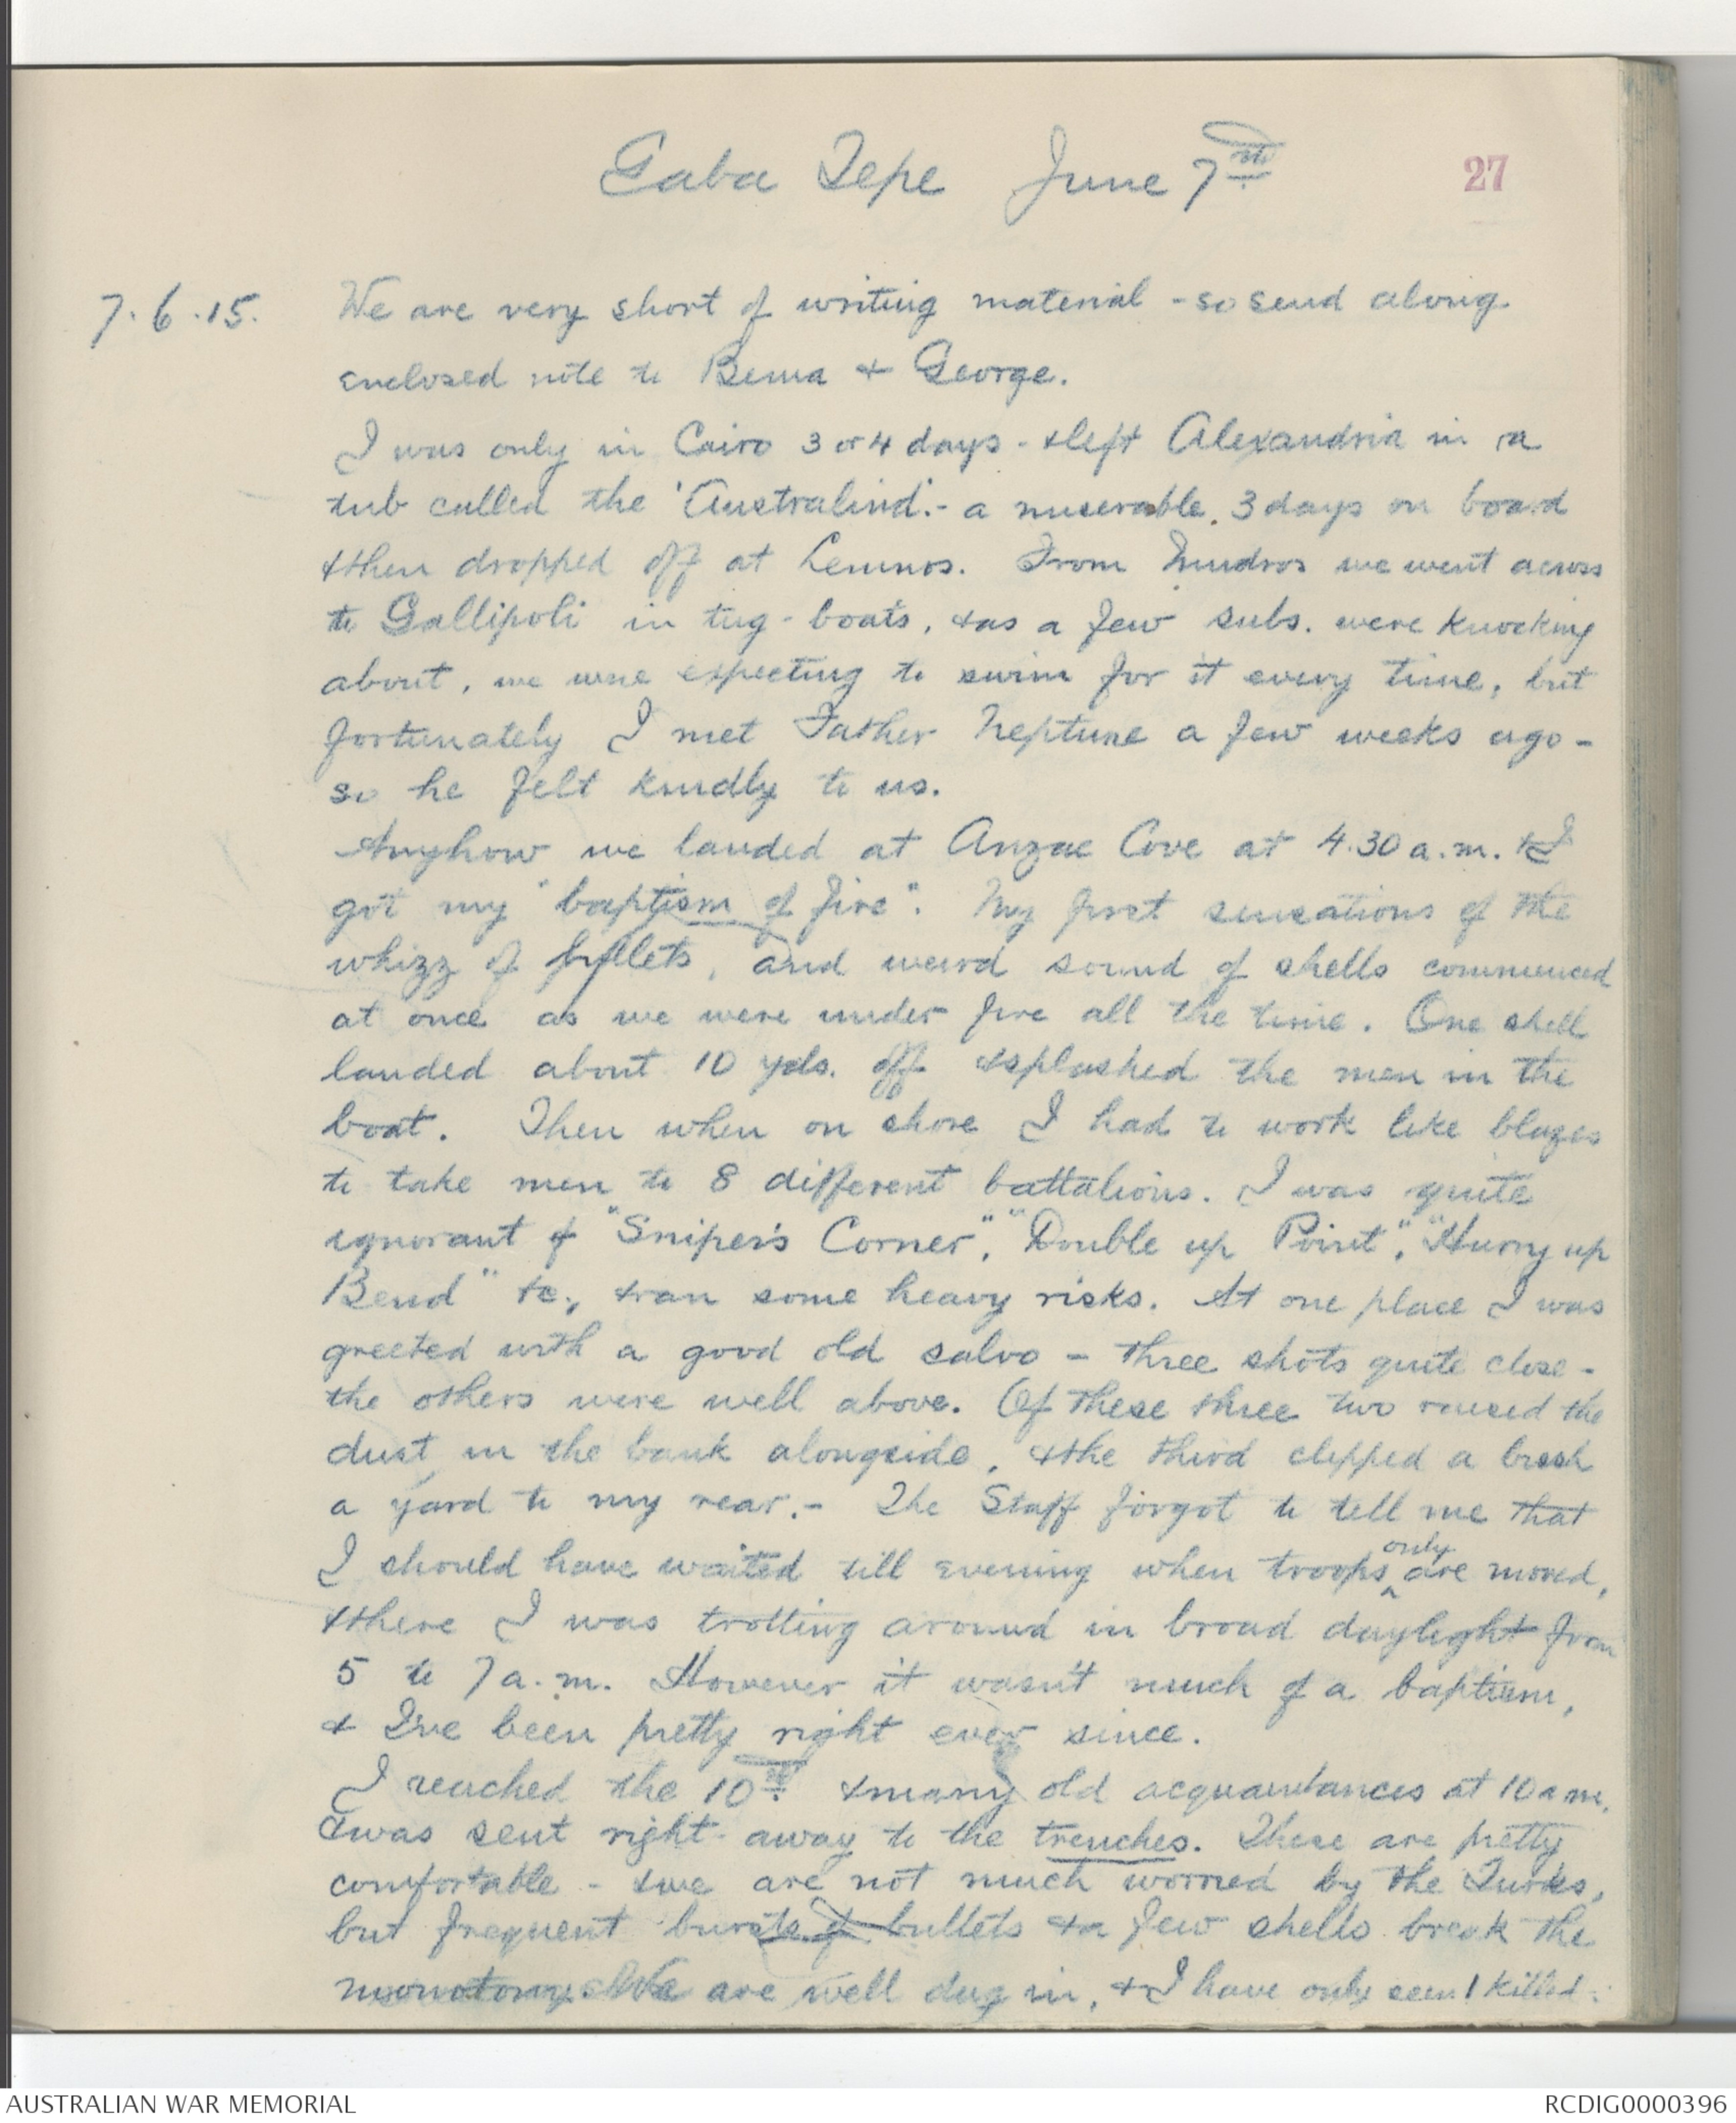 Gaba Tepe June 7th
27
7.6.15.
We are very short of writing material - so send along
enclosed note to Berna & George.
I was only in Cairo 3 or 4 days - & left Alexandria in a
tub called the 'Australind'. - a miserable 3 days on board
& then dropped off at Lemnos. From Mudros we went across
to Gallipoli in tug-boats, & as a few subs. were knocking
about, we were expecting to swim for it every time, but
fortunately I met Father Neptune a few weeks ago -
so he felt kindly to us.
Anyhow we landed at Anzac Cove at 4.30 a.m. & I
got my "baptism of fire". My first sensations of the
whizz of bullets, and weird sound of shells commenced
at once as we were under fire all the time. One shell
landed about 10 yds. off & splashed the men in the
boat. Then when on shore I had to work like blazes
to take men to 8 different battalions. I was quite
ignorant of "Sniper's Corner", "Double up Point", "Hurry up
Bend" &c., & ran some heavy risks. At one place I was
greeted with a good old salvo - three shots quite close -
the others were well above. Of these three two raised the
dust in the bank alongside, & the third clipped a bush
a yard to my rear. - The Staff forgot to tell me that
I should have waited till evening when troops only are moved,
& there I was trotting around in broad daylight from
5 to 7 a.m. However it wasn't much of a baptism,
& I've been pretty right ever since.
I reached the 10th & many old acquaintances at 10 a m.
& was sent right away to the trenches. These are pretty
comfortable - & we are not much worried by the Turks,
but frequent bursts of bullets & a few shells break the
monotony. We are well dug in, & I have only seen 1 killed.
AUSTRALIAN WAR MEMORIAL
RCDIG0000396